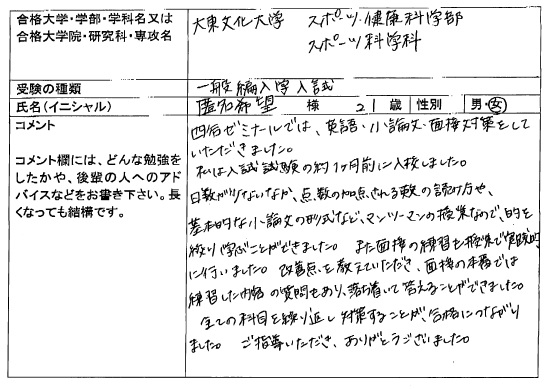 合格大学・学部・学科名又は
合格大学院・研究科・専攻名
大東文化大学 スポーツ・健康科学部
スポーツ科学科
受験の種類
一般編入学入試
氏名(イニシャル)
匿名希望 様 21 歳 性別 男・女
コメント
コメント欄には、どんな勉強を
したかや、後輩の人へのアド
バイスなどをお書き下さい。長
くなっても結構です。
四谷ゼミナールでは、英語・小論文・面接対策をして
いただきました。
私は入試試験の約1ヶ月前に入校しました。
日数が少ないなか、点数の加点される英文の読み方や、
基本的な小論文の形式など、マンツーマンの授業なので、的を
絞り学ぶことができました。 また面接の練習も授業で実践的
に行いました。 改善点を教えていただき、面接の本番では
練習した内容の質問もあり、落ち着いて答えることができました。
全ての科目を繰り返し対策することが、合格につながり
ました。 ご指導いただき、ありがとうございました。